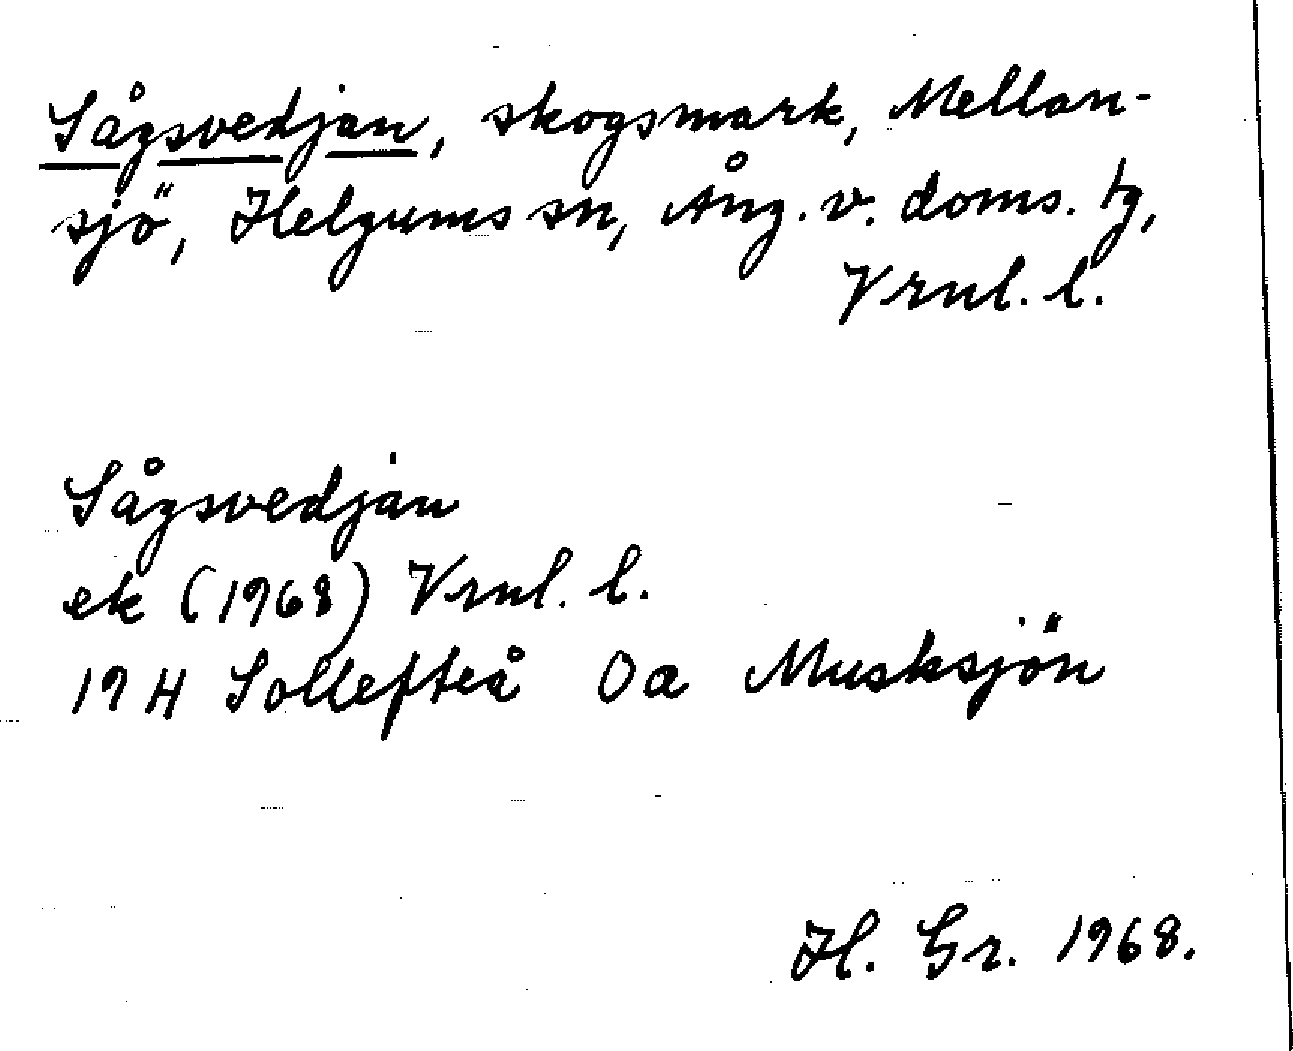 Sågsvedjan, skogsmark, Mellan-
sjö, Helgums sn, Ång. v. doms. tg,
Vrnl. l.
Sågsvedjan
ek (1968) Vrnl. l.
19 H Sollefteå 0a Musksjön
H. Gr. 1968.